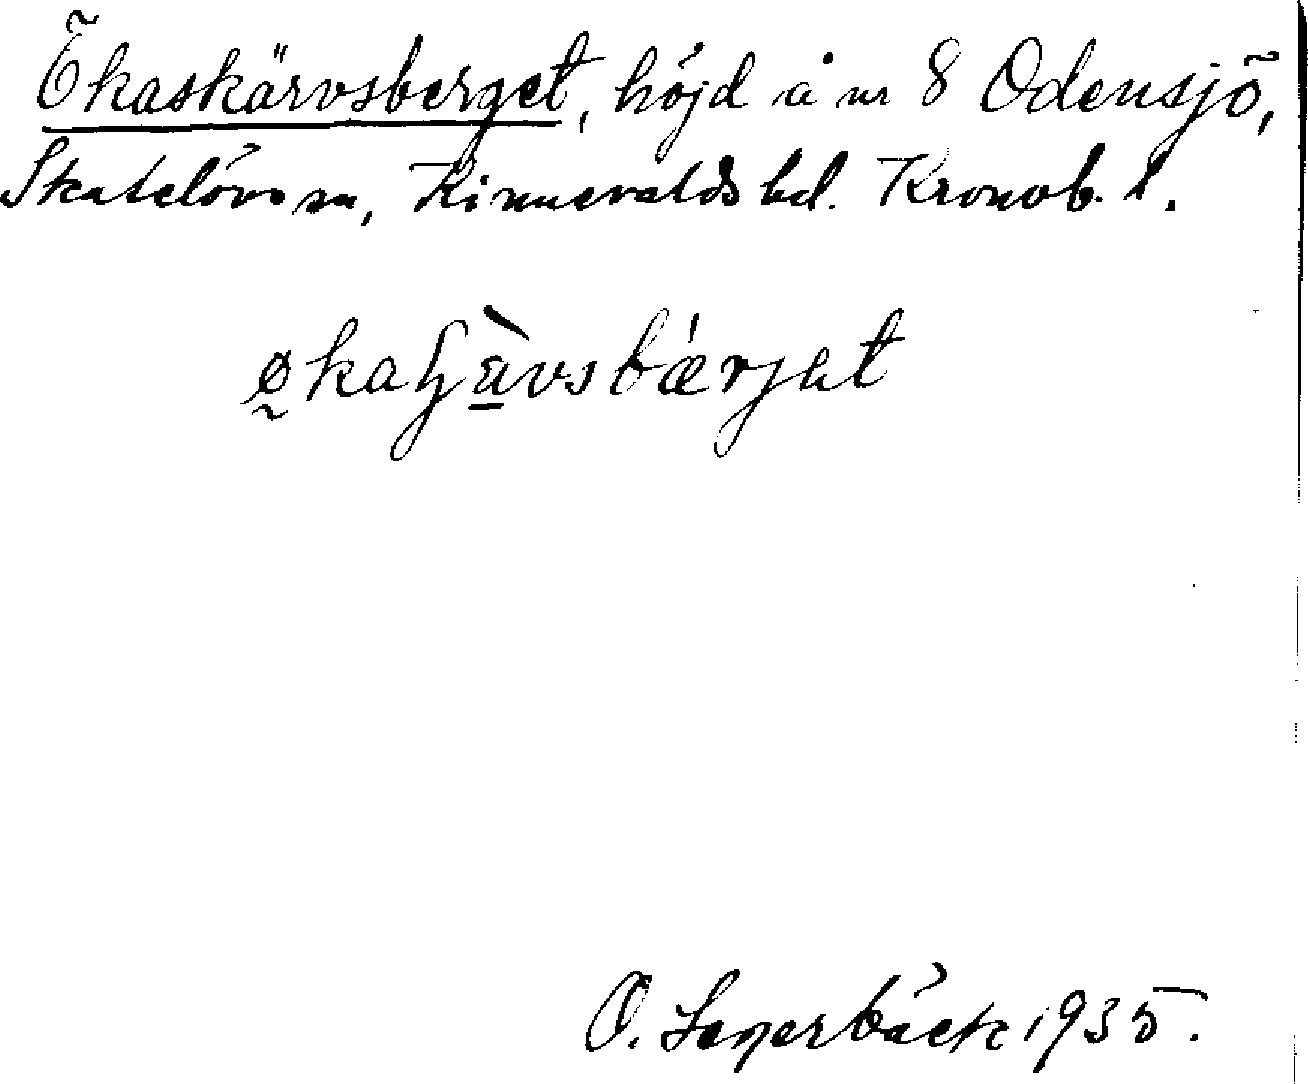 Ökaskärvsberget, höjd å nr 8 Odensjö,
Skatelövs sn, Kinnevalds hd. Kronob. l.
økaɧävsbǽrjət
O. Lagerbäck 1935.